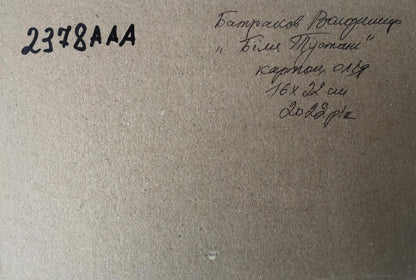 2378AAA
Батраков Володимир
„Біля Тустані"
картон, олія
16х22 см
2022 рік